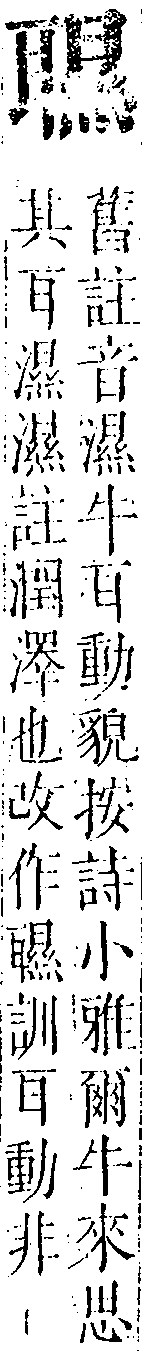 舊註音濕牛耳動貌按詩小雅爾牛來思
其耳濕濕註潤澤也改作訓耳動非